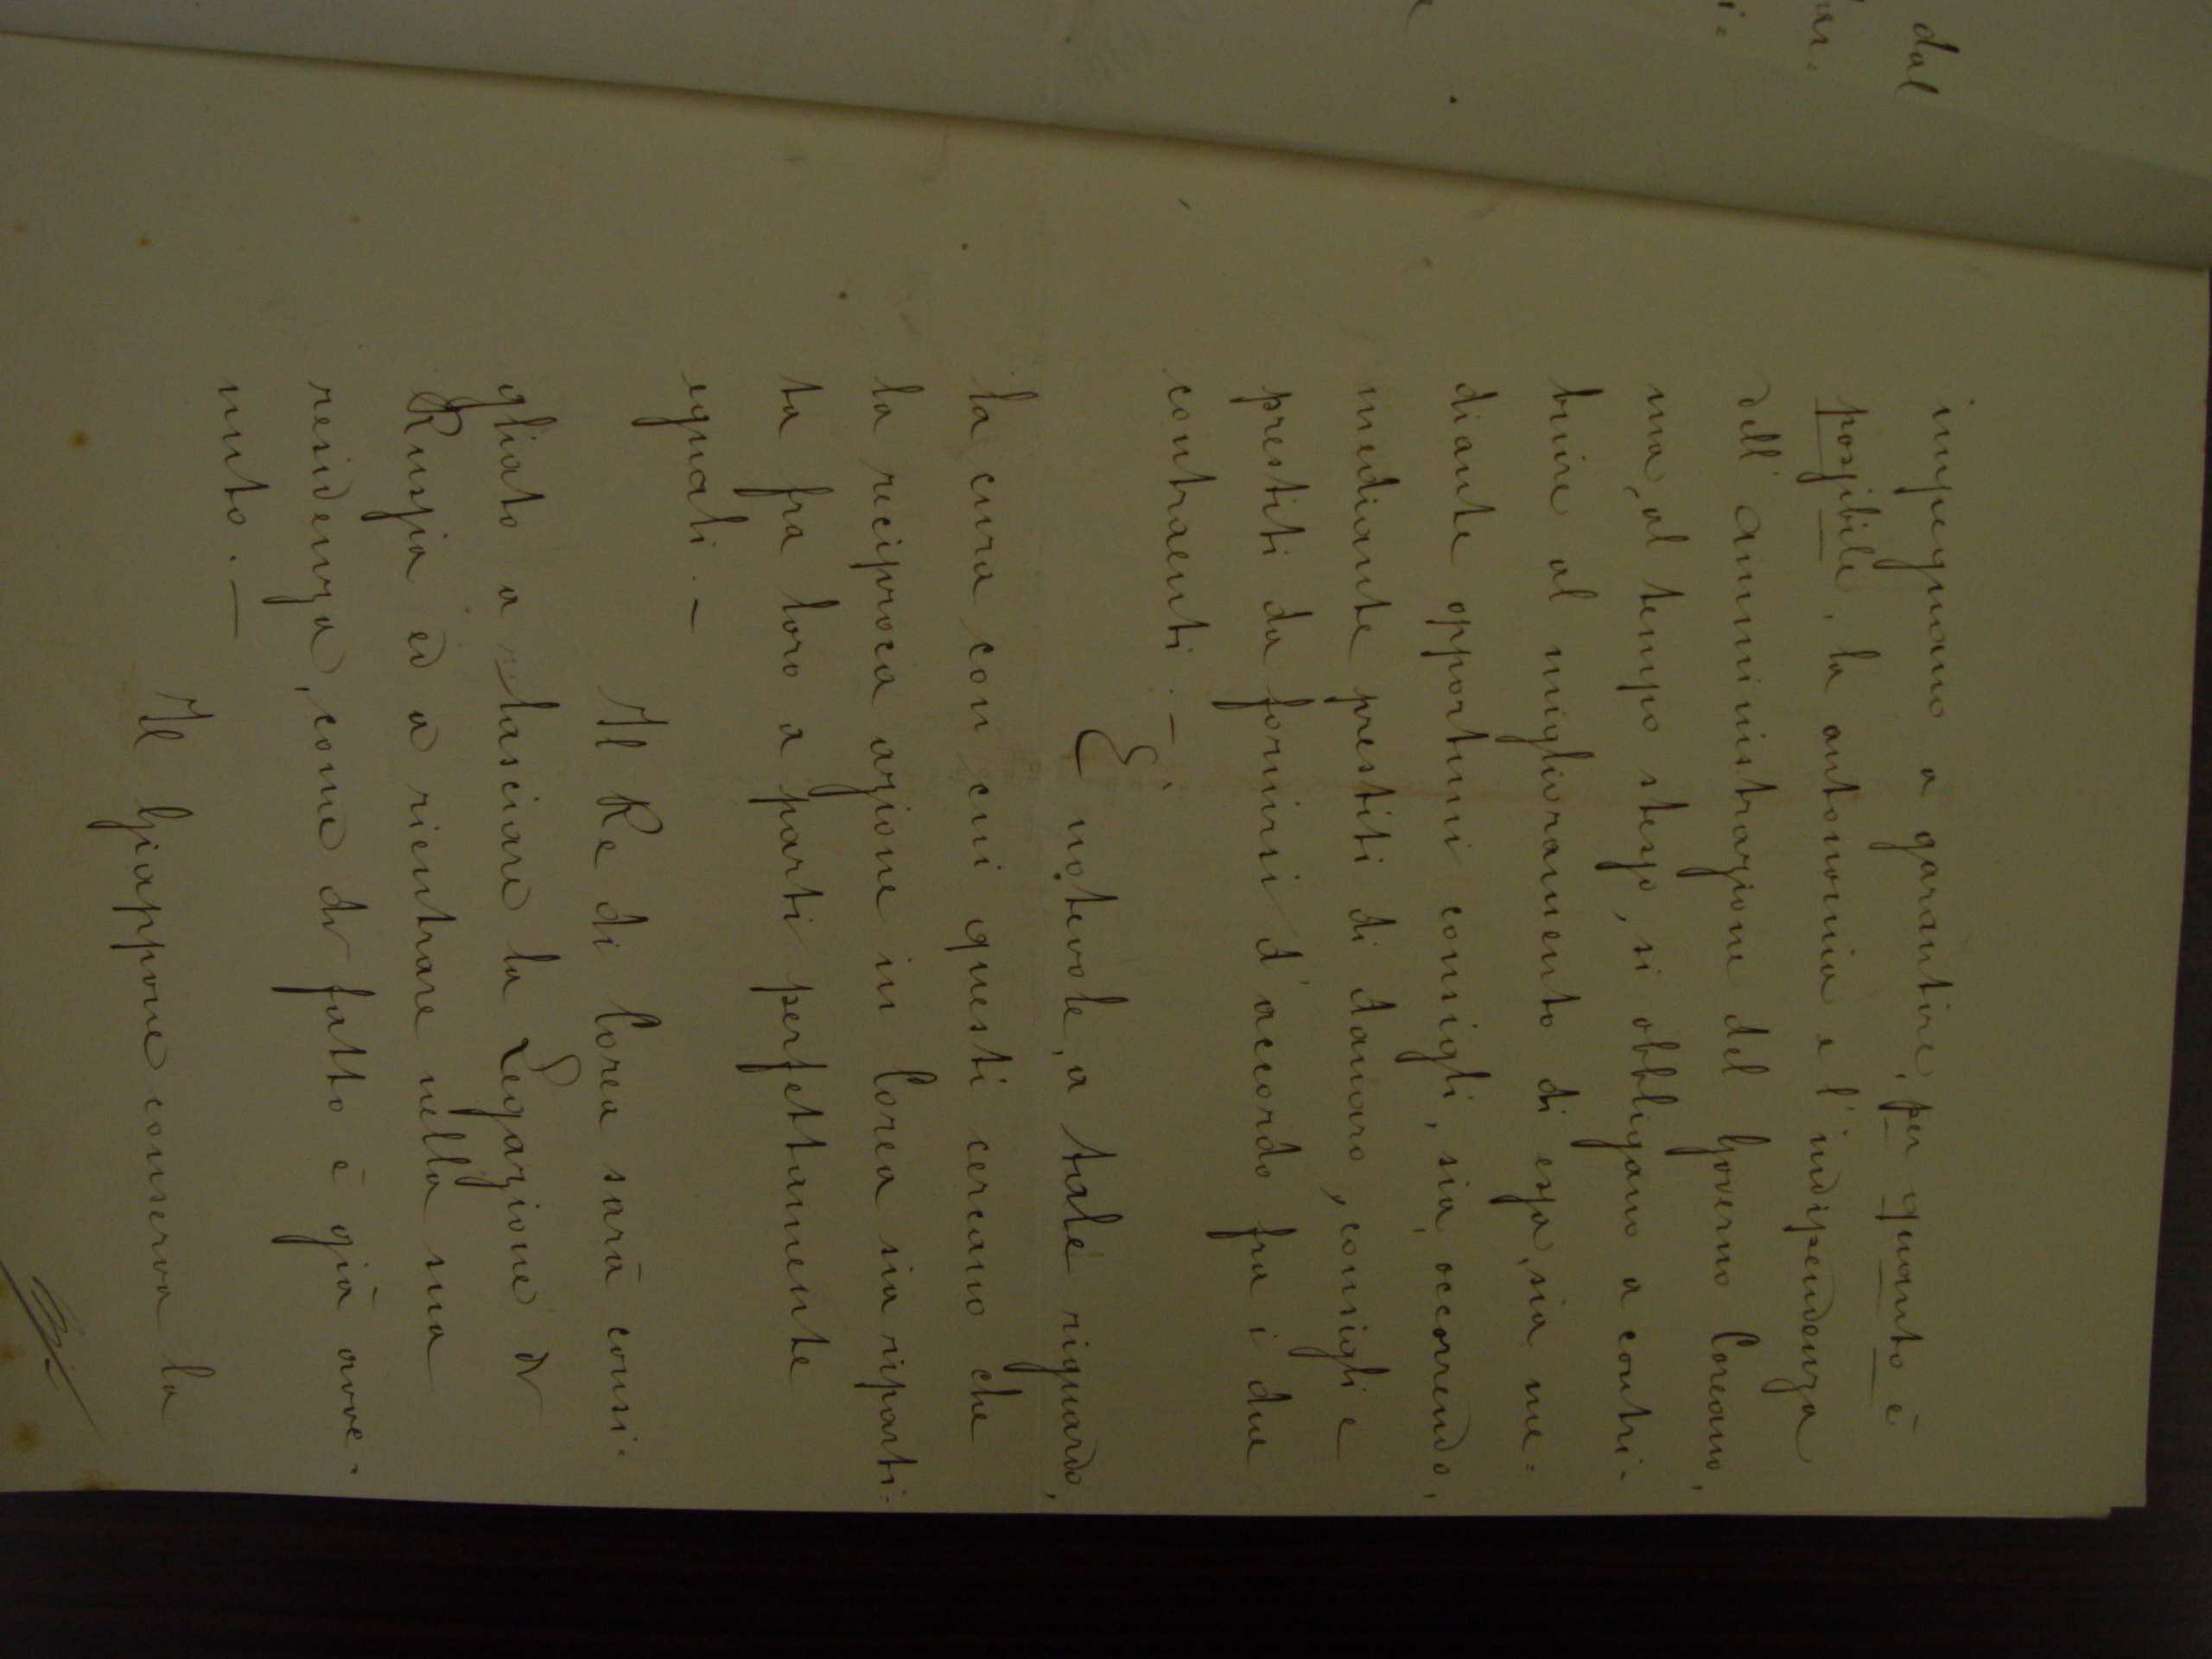 impegnano a garantire, per quanto è
possibile, la autonomia e l'indipendenza
dell'Amministrazione del Governo Coreano,
ma, al tempo stesso, si obbligano a contri-
buire al miglioramento di essa, sia me-
diante opportuni consigli, sia, occorrendo,
mediante prestiti di danaro, consigli e
prestiti da fornirsi d'accordo fra i due
contraenti. —
E' notevole, a tale riguardo,
la cura con cui questi cercano che
la reciproca azione in Corea sia riparti-
ta fra loro a parti perfettamente
eguali. —
Il Re di Corea sarà consi-
gliato a lasciare la Legazione di
Russia ed a rientrare nella sua
residenza, come di fatto è già avve-
nuto. —
Il Giappone conserva la
dal